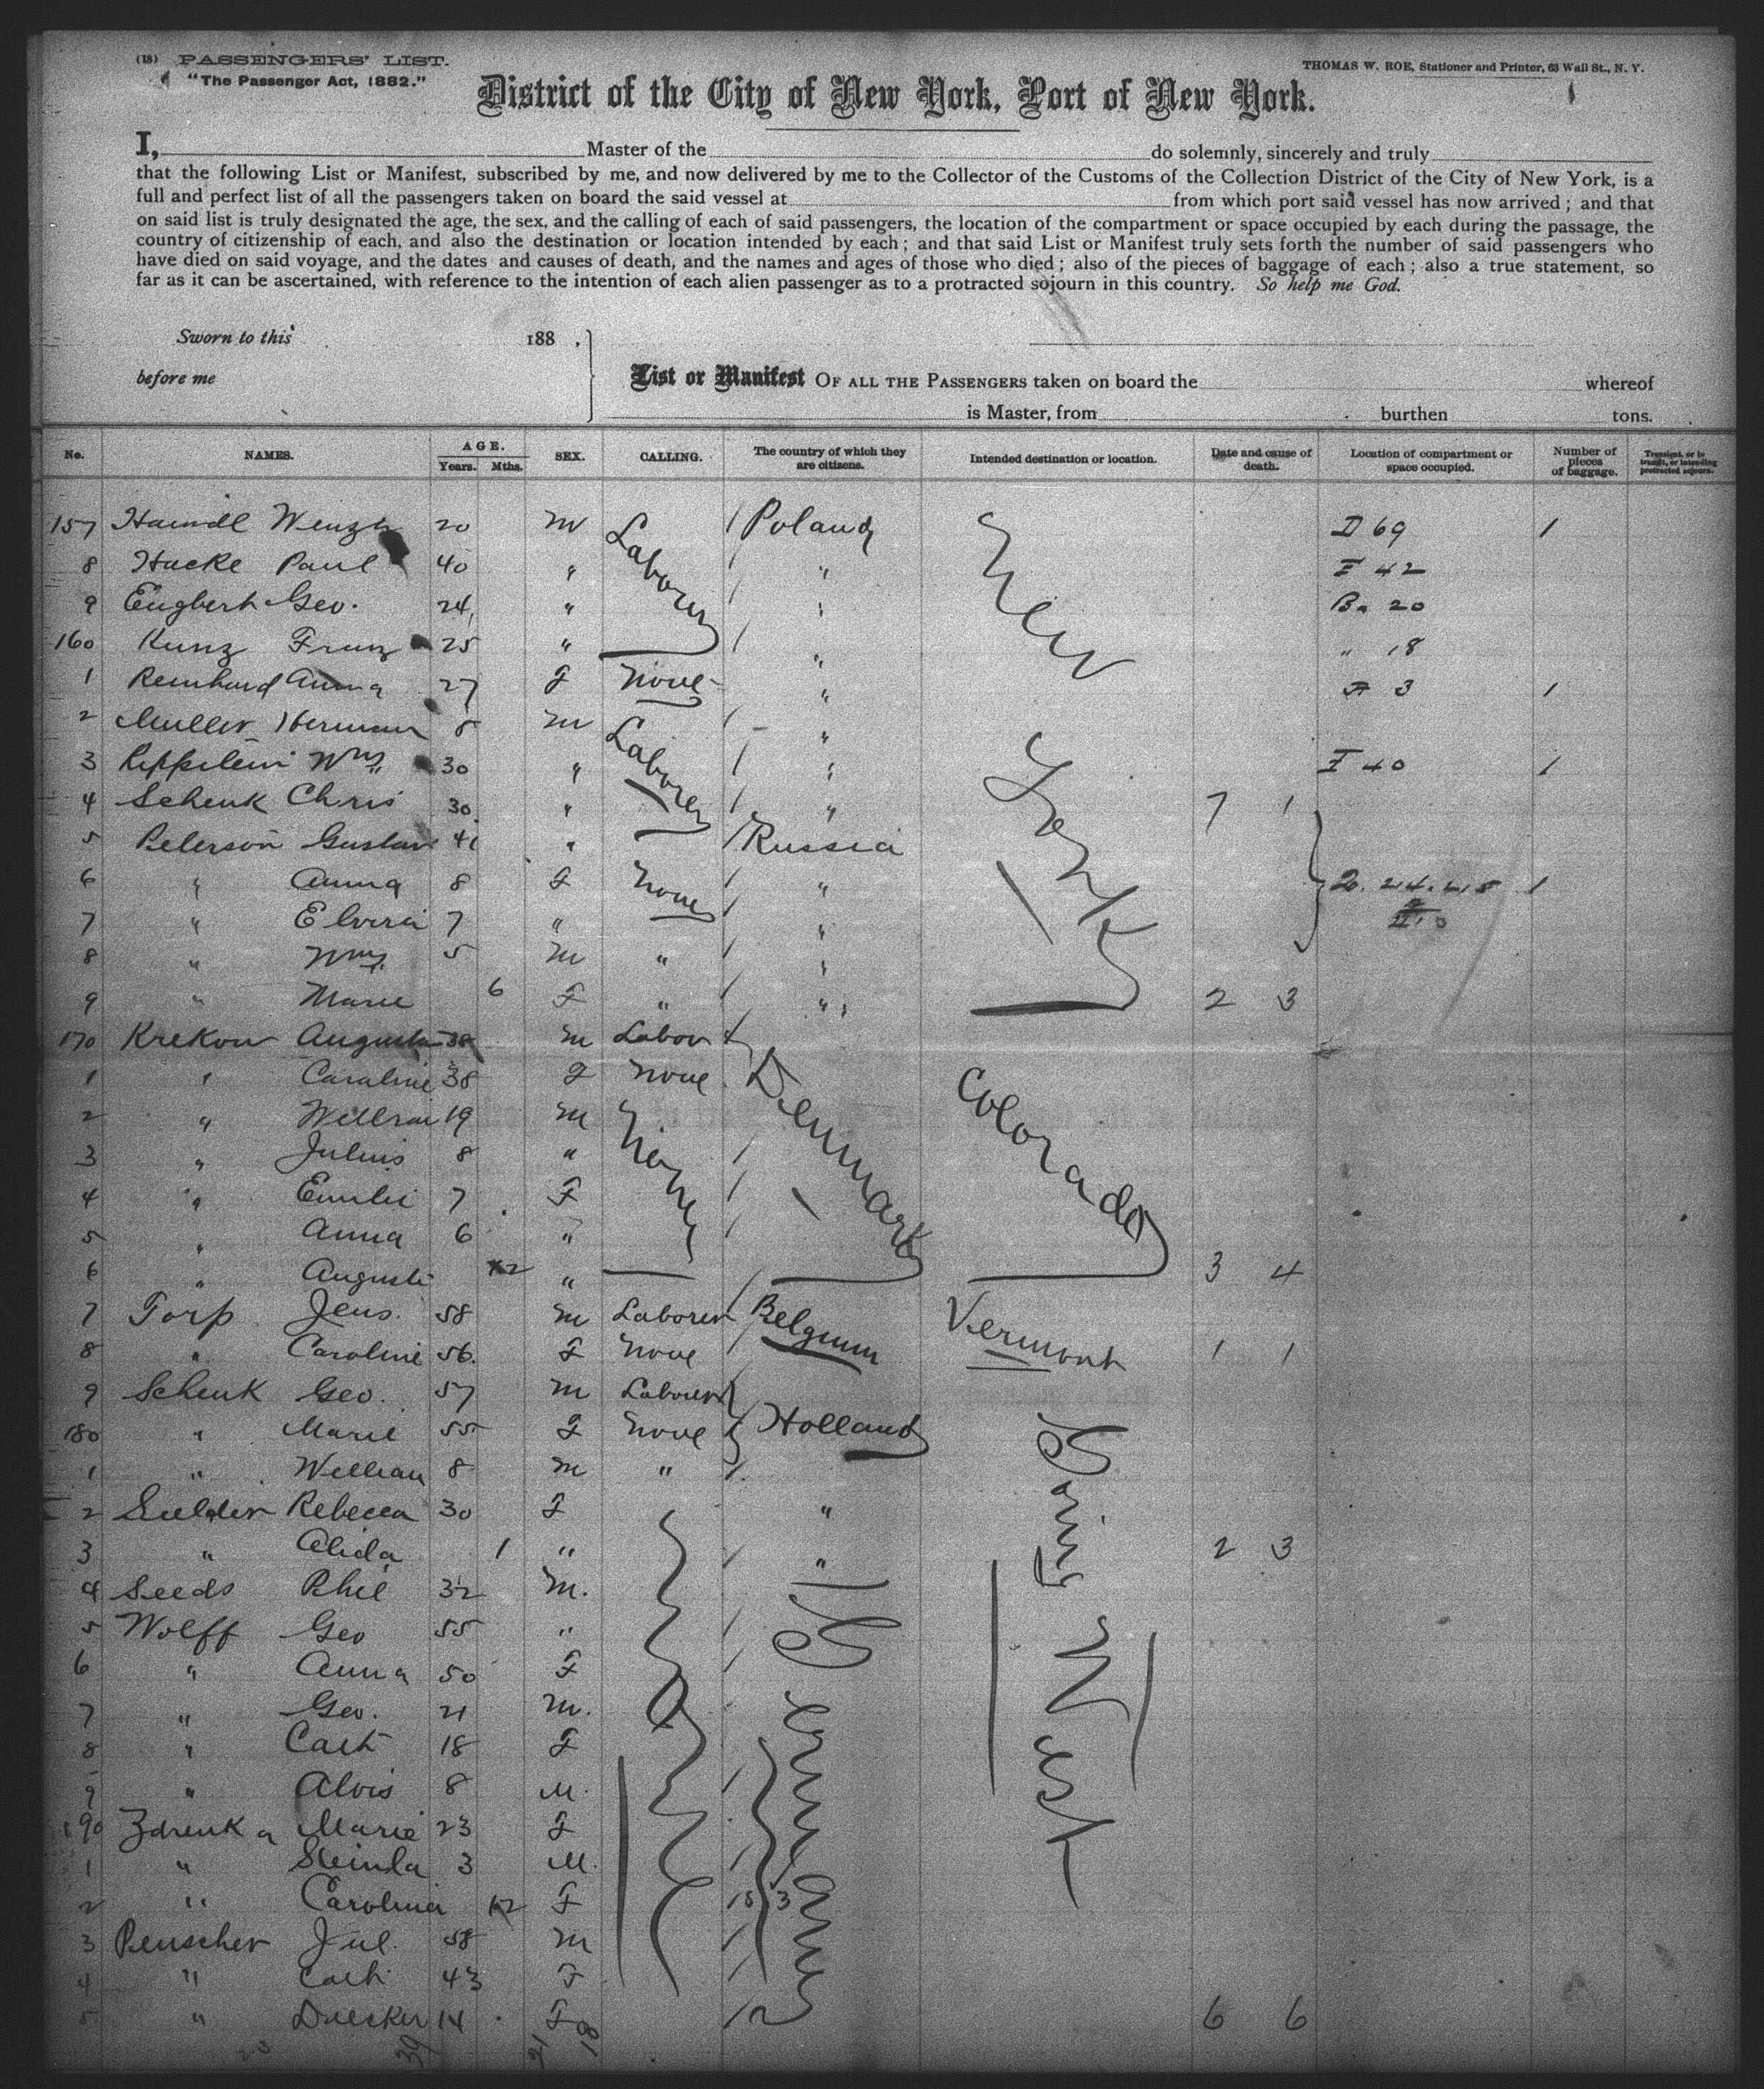 (18) PASSENGERS' LIST.
"The Passenger Act, 1882."
THOMAS W. ROE, Stationer and Printer, 63 Wall St., N. Y.
District of the City of New York, Port of New York.
I, Master of the do solemnly, sincerely and truly
that the following List or Manifest, subscribed by me, and now delivered by me to the Collector of the Customs of the Collection District of the City of New York, is a
full and perfect list of all the passengers taken on board the said vessel at from which port said vessel has now arrived; and that
on said list is truly designated the age, the sex, and the calling of each of said passengers, the location of the compartment or space occupied by each during the passage, the
country of citizenship of each, and also the destination or location intended by each; and that said List or Manifest truly sets forth the number of said passengers who
have died on said voyage, and the dates and causes of death, and the names and ages of those who died; also of the pieces of baggage of each; also a true statement, so
far as it can be ascertained, with reference to the intention of each alien passenger as to a protracted sojourn in this country. So help me God.
Sworn to this 188 .
before me
List or Manifest OF ALL THE PASSENGERS taken on board the whereof
is Master, from burthen tons.
No. NAMES. AGE. Years. Mths. SEX. CALLING. The country of which they are citizens. Intended destination or location. Date and cause of death. Location of compartment or space occupied. Number of pieces of baggage. Transient, or in transit, or intending protracted sojourn.
157 20 M Laborer Poland New York D 69 1
8 Hacke Paul 40 " " F 42
9 Engbert Geo. 24 " " B. 20
160 Kunz Franz 25 " " " 18
1 Reinhard Anna 27 F None " F 3 1
2 Muller Herman 8 M Laborer "
3 Wm 30 " " I 40 1
4 Schenk Chris 30 " " 7 1
5 Peterson Gustav 41 " Russia
6 " Anna 8 F None " 1
7 " Elvira 7 " "
8 " Wm. 5 M " "
9 " Marie 6 F " " 2 3
170 Krekow August 38 M Labor Denmark Colorado
1 " Caroline 38 F None
2 " William 19 M None
3 " Julius 8 "
4 " Emilie 7 F
5 " Anna 6 "
6 " Auguste "  3 4
7 Torp Jens. 58 M Laborer Belgium Vermont
8 " Caroline 56. F None 1 1
9 Schenk Geo. 57 M Laborer
180 " Marie 55 F None Holland Far West
1 " William 8 M "
2 Rebecca 30 F "
3 " Alida 1 " " 2 3
4 Seeds Phil 32 M. Germany
5 Wolff Geo 55 "
6 " Anna 50 F
7 " Geo. 21 M.
8 " Cath 18 F
9 " Alois 8 M.
190 Zdrenka Marie 23 F
1 " 3 M.
2 " Carolina F
3 Renscher Jul. 58 M
4 " Cath 43 F
5 " 14 F 6 6
39 21 18